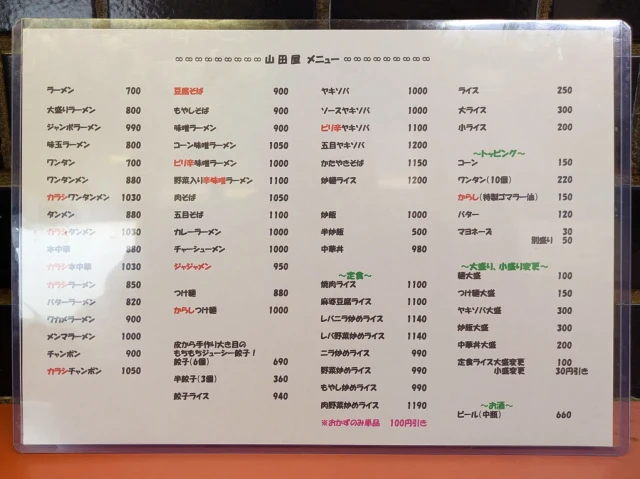 ∞∞∞∞∞∞∞∞∞ 山田屋 メニュー ∞∞∞∞∞∞∞∞∞
ラーメン 700
大盛りラーメン 800
ジャンボラーメン 990
味玉ラーメン 800
ワンタン 700
ワンタンメン 880
カラシワンタンメン 1030
タンメン 880
カラシタンメン 1030
本中華 880
カラシ本中華 1030
カラシラーメン 850
バターラーメン 820
ワカメラーメン 900
メンマラーメン 1000
チャンポン 900
カラシチャンポン 1050
豆腐そば 900
もやしそば 900
味噌ラーメン 900
コーン味噌ラーメン 1050
ピリ辛味噌ラーメン 1000
野菜入り辛味噌ラーメン 1100
肉そば 1050
五目そば 1100
カレーラーメン 1000
チャーシューメン 1000
ジャジャメン 950
つけ麺 880
からしつけ麺 1000
皮から手作り大き目の
もちもちジューシー餃子!
餃子(6個) 690
半餃子(3個) 360
餃子ライス 940
ヤキソバ 1000
ソースヤキソバ 1000
ピリ辛ヤキソバ 1100
五目ヤキソバ 1200
かたやきそば 1150
炒麺ライス 1200
炒飯 1000
半炒飯 500
中華丼 980
~定食~
焼肉ライス 1100
麻婆豆腐ライス 1100
レバニラ炒めライス 1140
レバ野菜炒めライス 1140
ニラ炒めライス 990
野菜炒めライス 990
もやし炒めライス 990
肉野菜炒めライス 1190
※おかずのみ単品 100円引き
ライス 250
大ライス 300
小ライス 200
~トッピング~
コーン 150
ワンタン(10個) 220
からし(特製ゴマラー油) 150
バター 120
マヨネーズ 30
別盛り 50
~大盛り、小盛り変更~
麺大盛 100
つけ麺大盛 150
ヤキソバ大盛 300
炒飯大盛 300
中華丼大盛 200
定食ライス大盛変更 100
小盛変更 30円引き
~お酒~
ビール(中瓶) 660